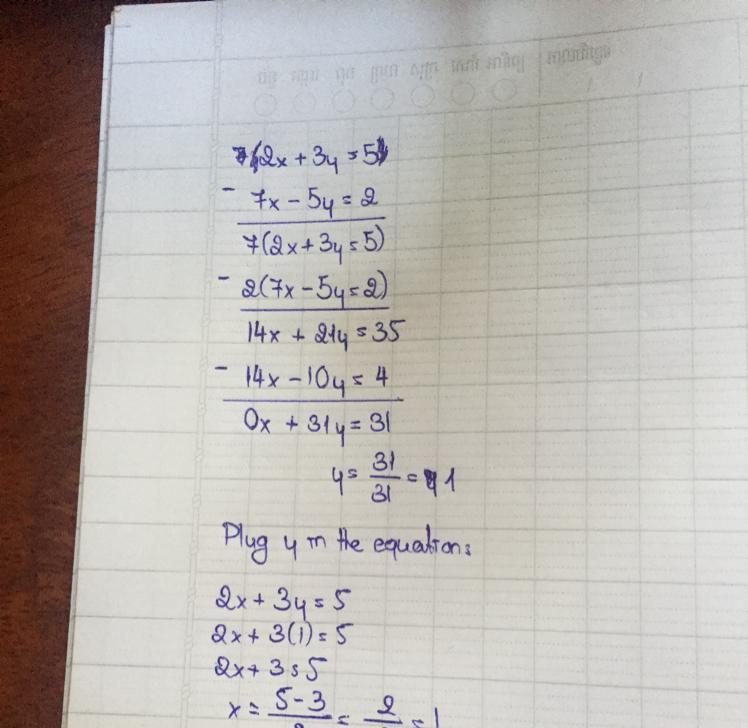 7(2x + 3y = 5)
- 7x - 5y = 2
7(2x + 3y = 5)
- 2(7x - 5y = 2)
14x + 21y = 35
- 14x - 10y = 4
0x + 31y = 31
y = 31/31 = 1
Plug y in the equation:
2x + 3y = 5
2x + 3(1) = 5
2x + 3 = 5
x = 5-3/2 = 2/ = 1